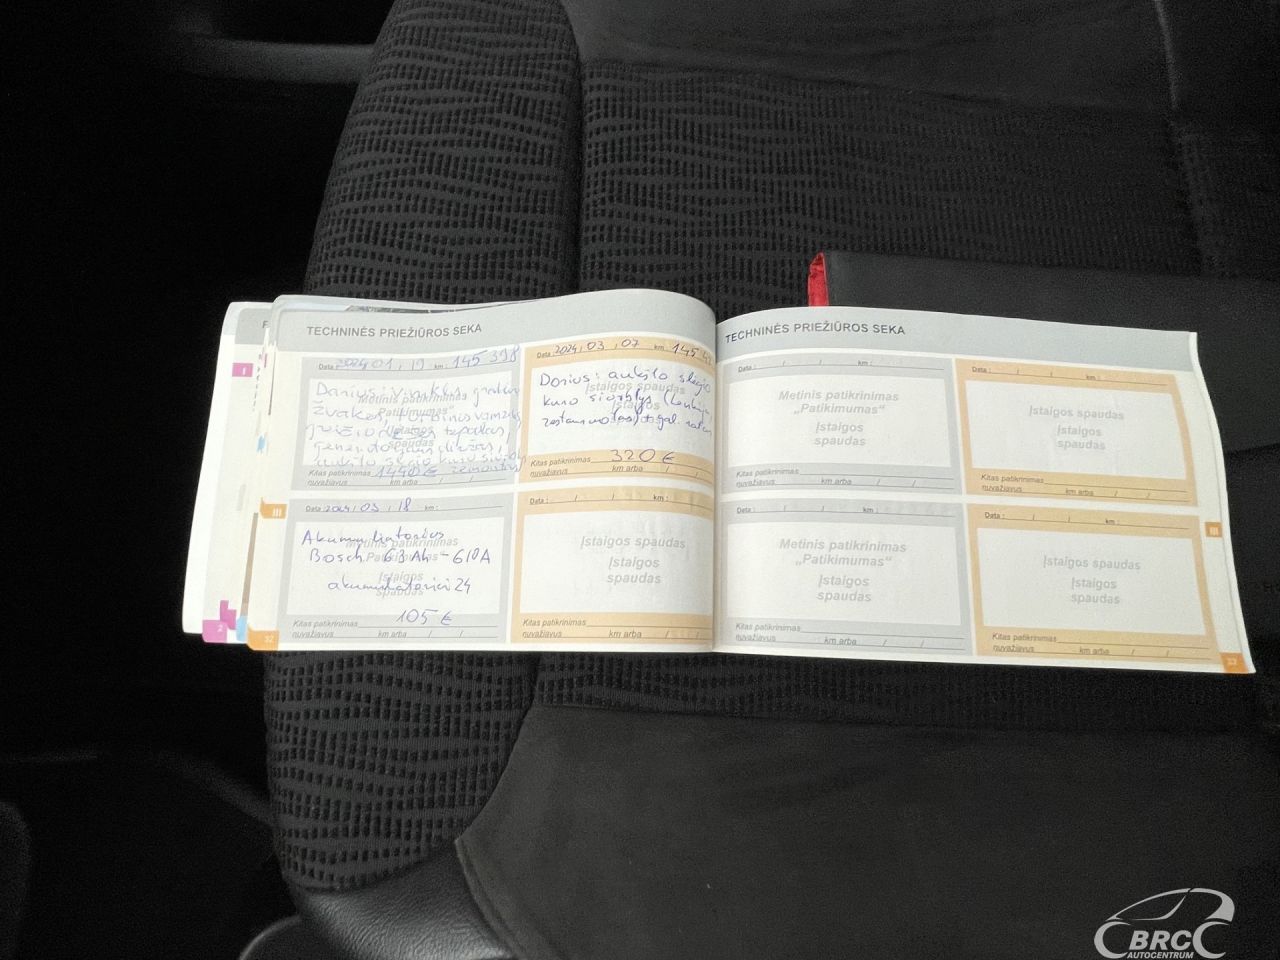 TECHNINĖS PRIEŽIŪROS SEKA
Data 2024 01 , 19 145 398
Darius:
Metinis patikrinimas
„Patikimumas“
Įstaigos
spaudas
Žvakes,
tepalas,
Generatoriaus diržas,
aukšto slėgio kuro
Kitas patikrinimas 1440 €
nuvažiavus km arba / /
Data 2024 , 03 , 07 km: 145
Darius: aukšto slėgio
Įstaigos spaudas
kuro siurblys
320 €
Kitas patikrinimas
nuvažiavus km arba / /
Data 2024 , 03 , 18 km :
Akumuliatorius
Metinis patikrinimas
Bosch 63 Ah - 610A
„Patikimumas“
Įstaigos
spaudas
akumuliatoriai 24
105 €
Kitas patikrinimas
nuvažiavus km arba / /
Data : / / km :
Įstaigos spaudas
Įstaigos
spaudas
Kitas patikrinimas
nuvažiavus km arba / /
III
32
2
TECHNINĖS PRIEŽIŪROS SEKA
Data : / / km :
Metinis patikrinimas
„Patikimumas“
Įstaigos
spaudas
Kitas patikrinimas
nuvažiavus km arba / /
Data : / / km :
Įstaigos spaudas
Įstaigos
spaudas
Kitas patikrinimas
nuvažiavus km arba / /
Data : / / km :
Metinis patikrinimas
„Patikimumas“
Įstaigos
spaudas
Kitas patikrinimas
nuvažiavus km arba / /
Data : / / km :
Įstaigos spaudas
Įstaigos
spaudas
Kitas patikrinimas
nuvažiavus km arba / /
III
33
BRC
AUTOCENTRUM